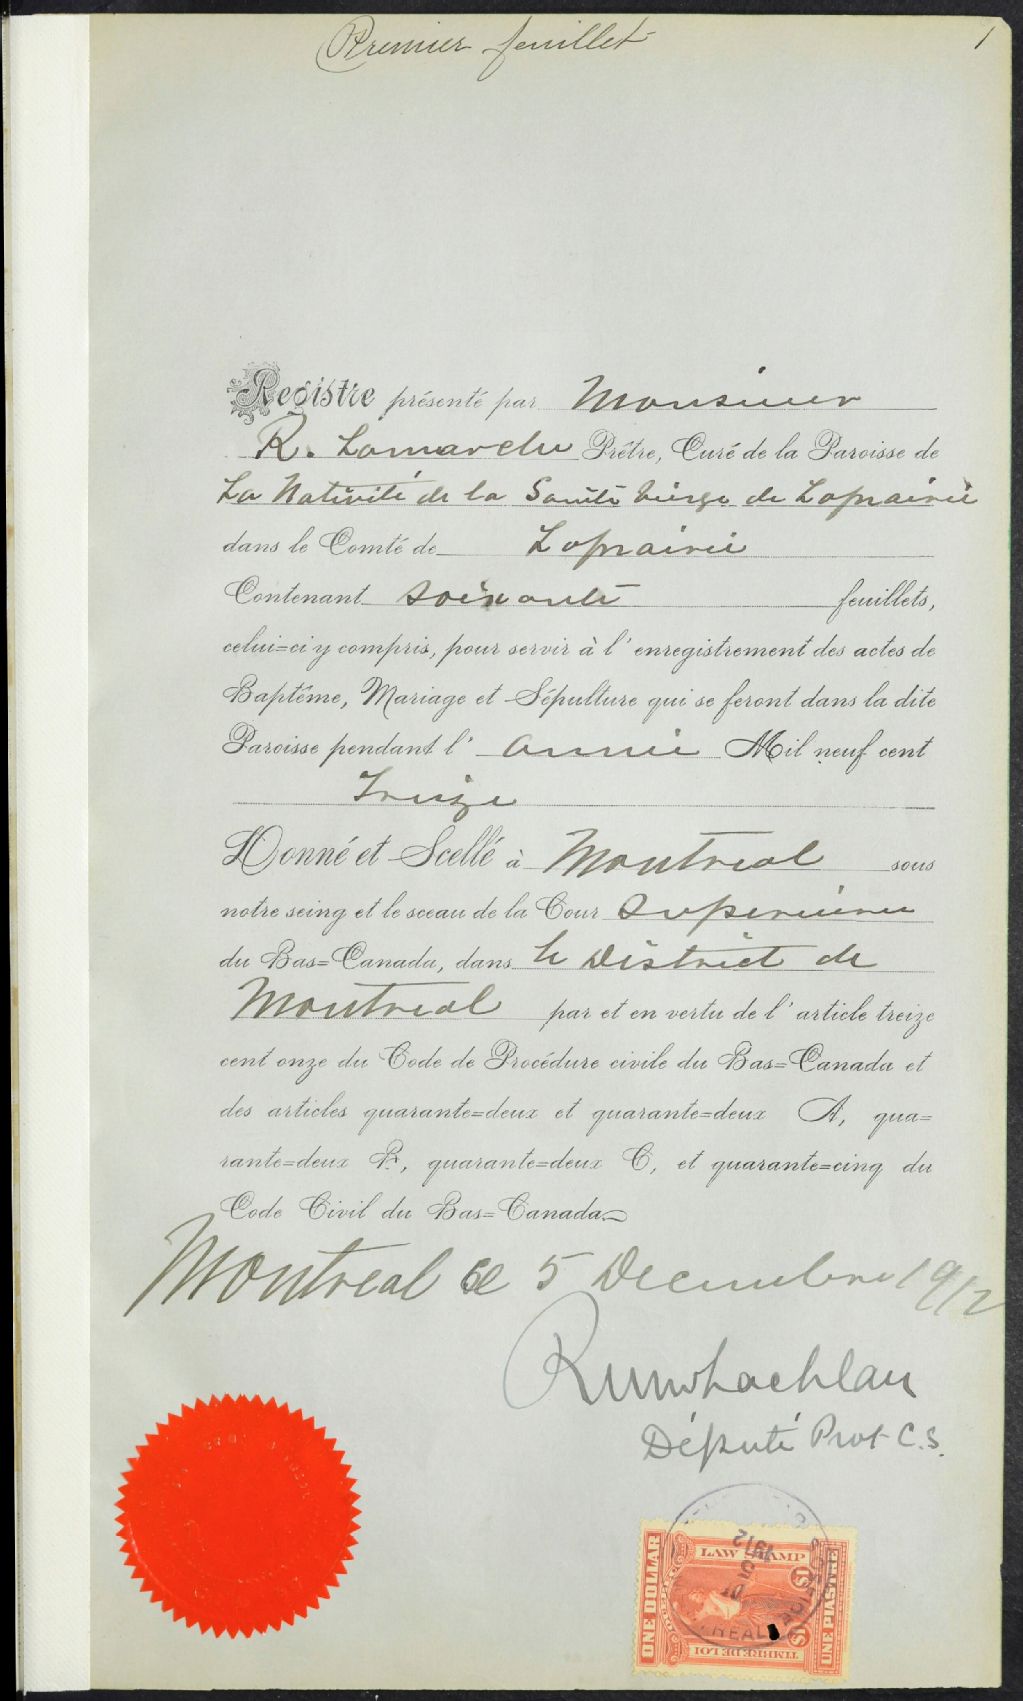 Premier feuillet
1
Registre présenté par Monsieur
R. Lamarche Prêtre, Curé de la Paroisse de
La Nativité de la Sainte Vierge de Laprairie
dans le Comté de Laprairie
Contenant soixante feuillets,
celui=ci y compris, pour servir à l'enregistrement des actes de
Baptême, Mariage et Sépulture qui se feront dans la dite
Paroisse pendant l'année Mil neuf cent
Treize
Donné et Scellé à Montreal sous
notre seing et le sceau de la Cour Superieure
du Bas=Canada, dans le District de
Montreal par et en vertu de l'article treize
cent onze du Code de Procédure civile du Bas=Canada et
des articles quarante=deux et quarante=deux A, qua=
rante=deux B, quarante=deux C, et quarante=cinq du
Code Civil du Bas=Canada
Montreal ce 5 Decembre 1912
Député Prot C.S.
ONE DOLLAR
LAW STAMP
$1
UNE PIASTRE
TIMBRE DE LOI
$1
1912